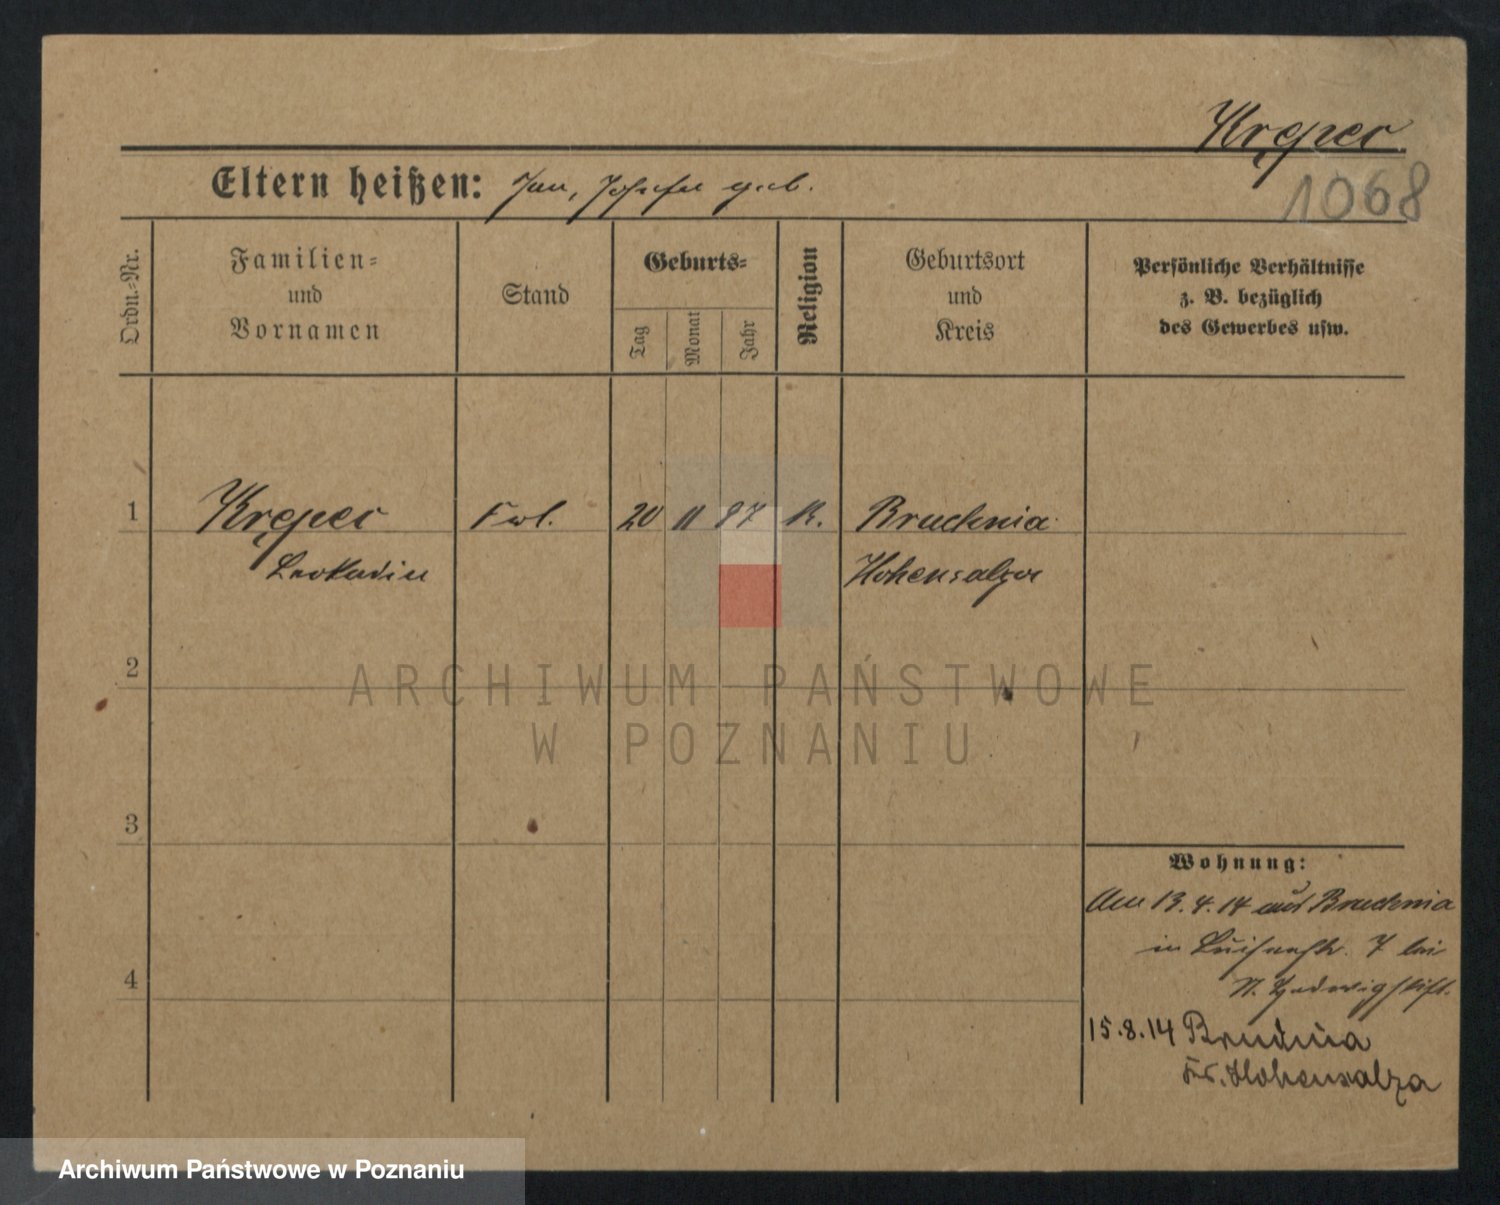 Krępec
1068
Eltern heißen: Jan, Josefa geb.
Ordn.-Nr.
Familien-
und
Vornamen
Stand
Geburts-
Tag
Monat
Jahr
Religion
Geburtsort
und
Kreis
Persönliche Verhältnisse
z. B. bezüglich
des Gewerbes usw.
1
Krępec Frl. 20 11 97 K. Bruchnia
Leokadia Hohensalza
2
ARCHIWUM PAŃSTWOWE
W POZNANIU
3
Wohnung:
Am 13.4.14 aus Bruchnia
in Luisenstr. 7 bei
Hedwigstift.
4
15.8.14 Brudnia
Kr. Hohensalza
Archiwum Państwowe w Poznaniu